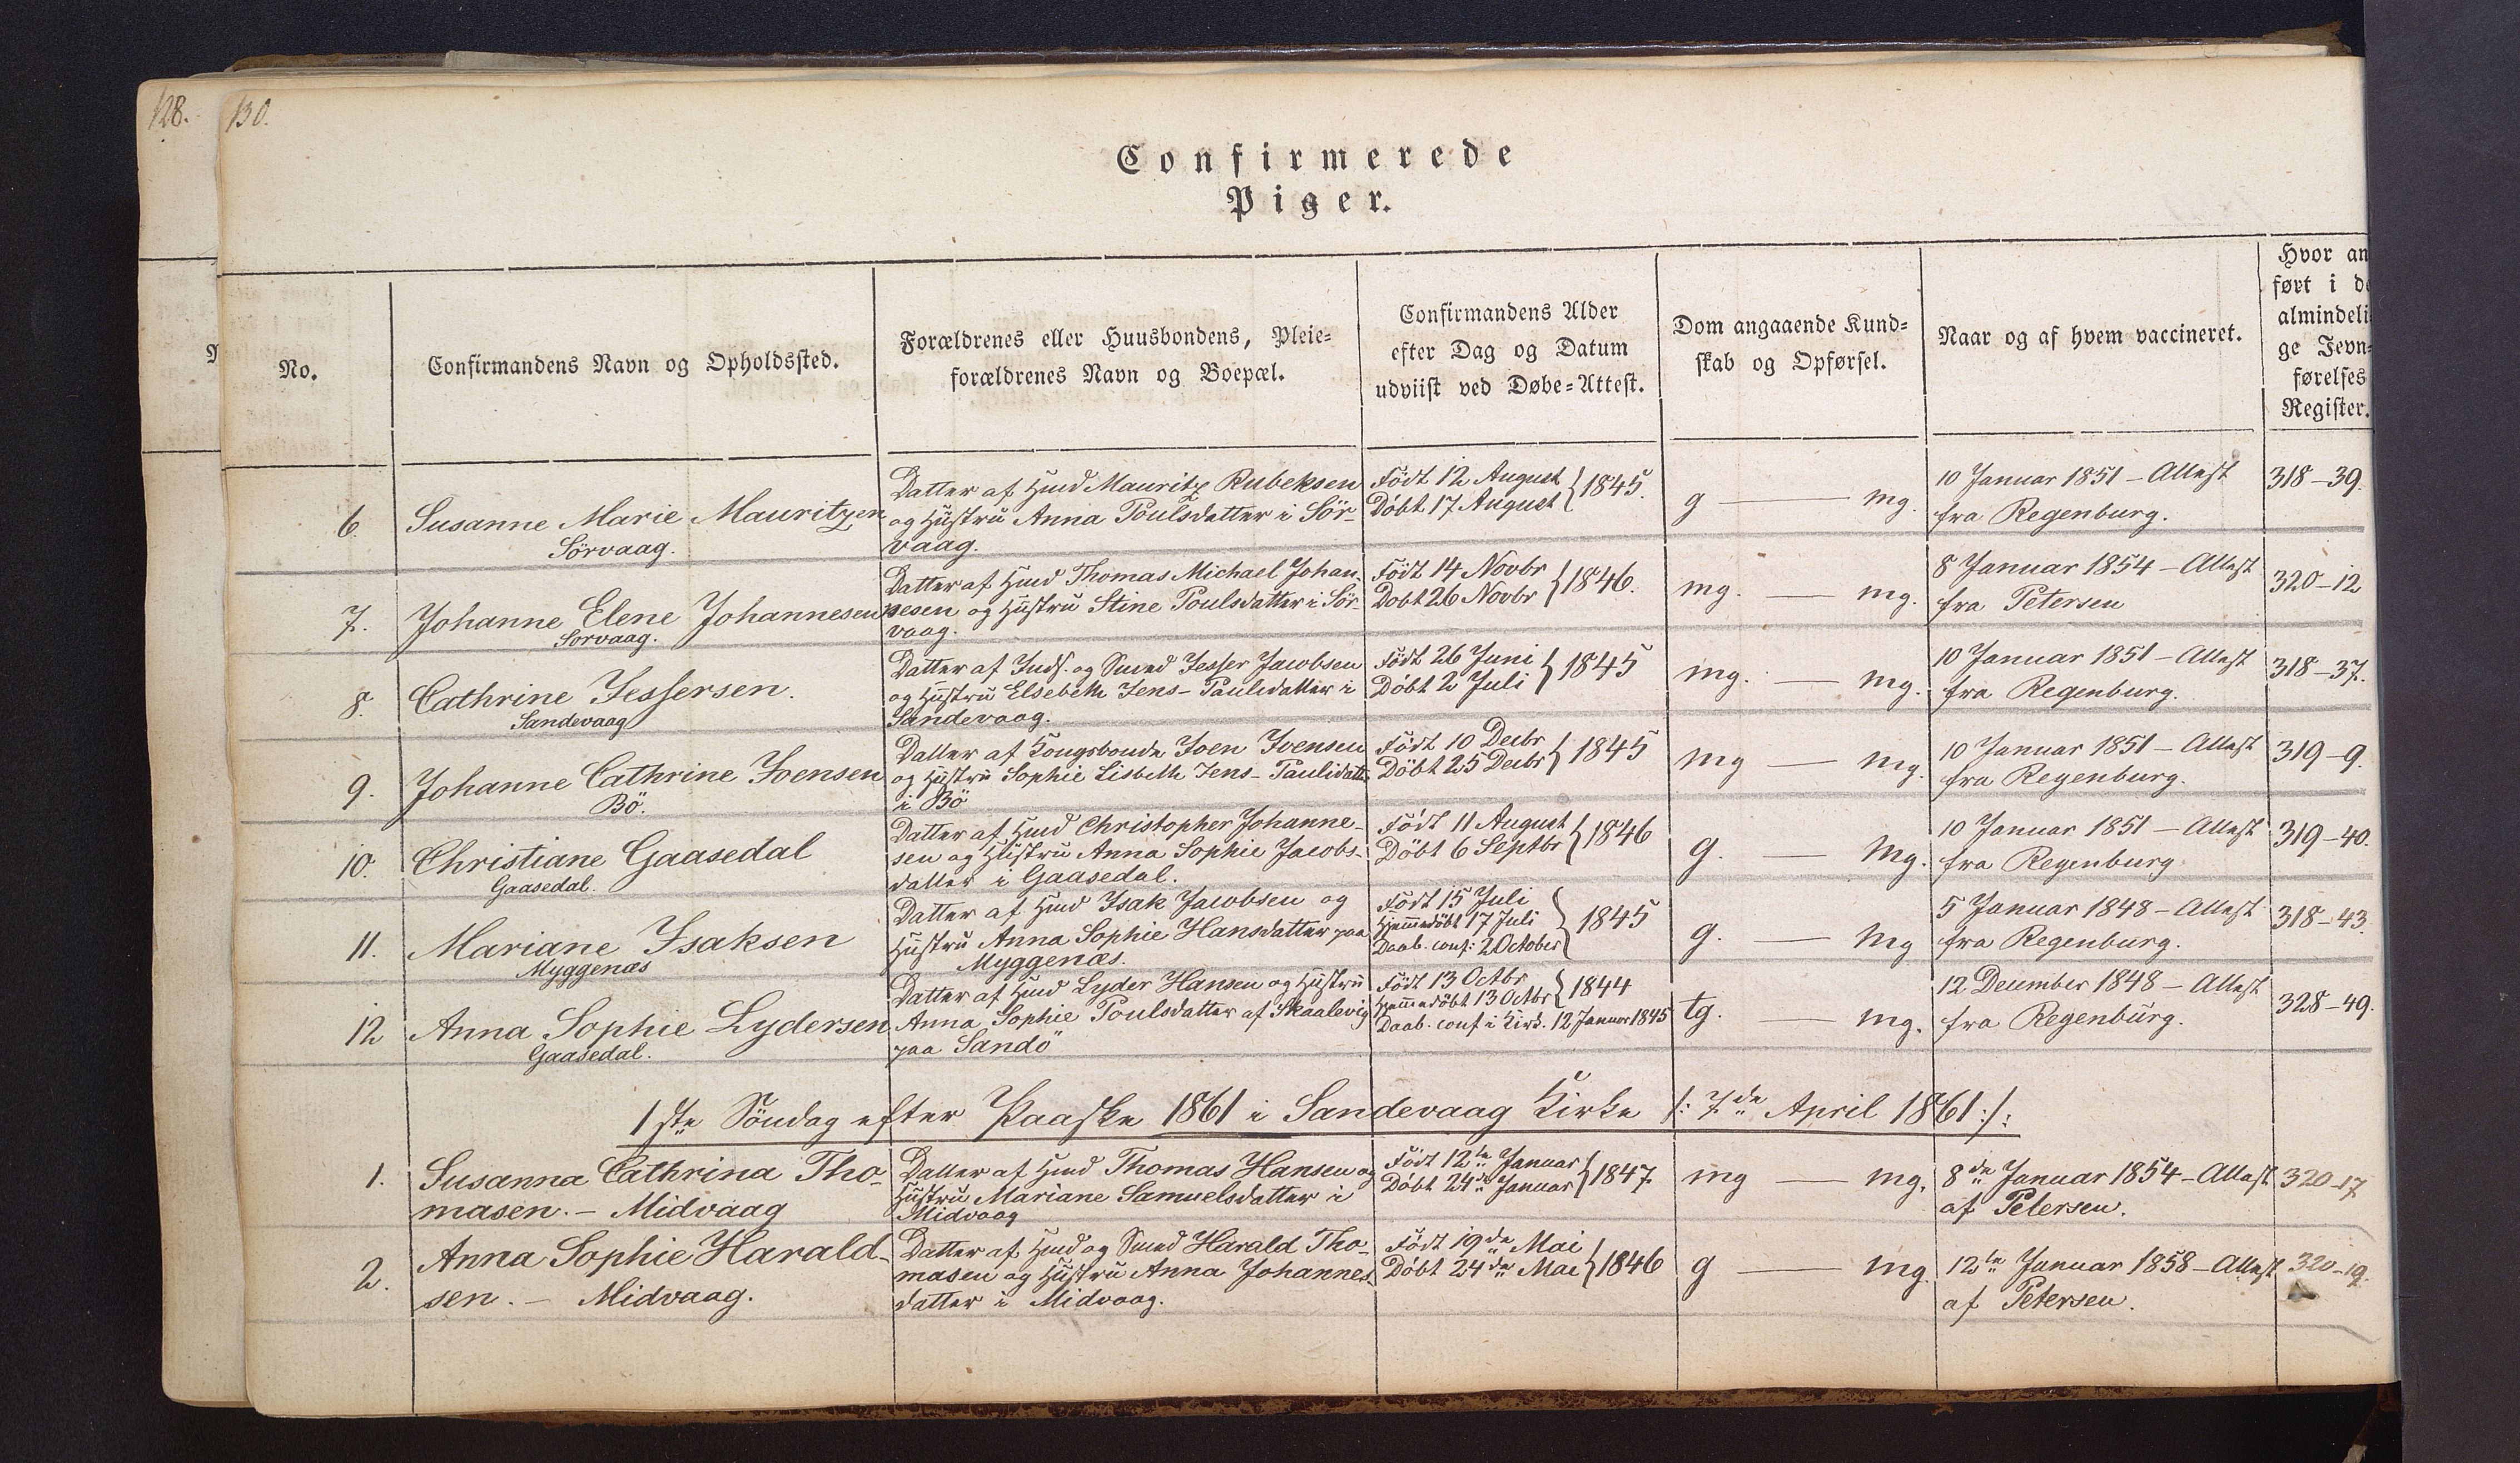 128.
130.
Confirmerede
Piger.
No.
Confirmandens Navn og Opholdssted.
Forældrenes eller Huusbondens, Pleie=
forældrenes Navn og Boepæl.
Confirmandens Alder
efter Dag og Datum
udviist ved Døbe=Attest.
Dom angaaende Kund=
skab og Opførsel.
Naar og af hvem vaccineret.
Hvor an
ført i de
almindeli
ge Jevn=
førelses
Register.
6.
Susanne Marie Mauritzen
Sörvaag.
Datter af Hmd Mauritz Rubeksen
og Hustru Anna Poulsdatter i Sör-
vaag.
Födt 12 August
Döbt 17 August } 1845.
g — mg.
10 Januar 1851 – Attest
fra Regenburg.
318–39.
7.
Johanne Elene Johannesen
Sorvaag.
Datter af Hmd Thomas Michael Johan-
nesen og Hustru Stine Poulsdatter i Sör-
vaag.
Födt 14 Novbr
Dobt 26 Novbr } 1846.
mg. — mg.
8 Januar 1854 – Attest
fra Petersen
320–12
8.
Cathrine Jessersen.
Sandevaag
Datter af Inds. og Smed Jesser Jacobsen
og Hustru Elsebeth Jens-Paulsdatter i
Sandevaag.
Födt 26 Juni
Döbt 2 Juli } 1845
mg. — mg.
10 Januar 1851 – Attest
fra Regenburg.
318–37.
9.
Johanne Cathrine Joensen
Bö.
Datter af Kongsbonde Joen Joensen
og Hustru Sophie Lisbeth Jens-Paulidatter
i Bö
Födt 10 Decbr
Döbt 25 Decbr } 1845
mg — mg.
10 Januar 1851 – Attest
fra Regenburg.
319–9.
10.
Christiane Gaasedal
Gaasedal.
Datter af Hmd Christopher Johanne-
sen og Hustru Anna Sophie Jacobs-
datter i Gaasedal.
Födt 11 August
Döbt 6 Septbr } 1846
g. — mg.
10 Januar 1851 – Attest
fra Regenburg
319–40.
11.
Mariane Isaksen
Myggenæs
Datter af Hmd Isak Jacobsen og
Hustru Anna Sophie Hansdatter paa
Myggenæs.
Födt 15 Juli
Hjemmedöbt 17 Juli
Daab. conf: 2 October } 1845
g. — mg
5 Januar 1848 – Attest
fra Regenburg.
318–43.
12
Anna Sophie Lydersen
Gaasedal.
Datter af Hmd Lyder Hansen og Hustru
Anna Sophie Poulsdatter af Skaalevig
paa Sandö
Födt 13 Octbr
Hjemmedöbt 13 Octbr } 1844
Daab. conf i Kirk. 12 Januar 1845
tg. — mg.
12 December 1848 – Attest
fra Regenburg.
328–49.
1ste Söndag efter Paaske 1861 i Sandevaag Kirke /: 7de April 1861 :/:
1.
Susanna Cathrina Tho-
masen. – Midvaag
Datter af Hmd Thomas Hansen og
Hustru Mariane Samuelsdatter i
Midvaag
Födt 12te Januar
Döbt 24de Januar } 1847.
mg — mg.
8de Januar 1854 – Attest
af Petersen.
320–17
2.
Anna Sophie Harald-
sen. – Midvaag.
Datter af Hmd og Smed Harald Tho-
masen og Hustru Anna Johannes-
datter i Midvaag.
Födt 19de Mai
Döbt 24de Mai } 1846
g — mg.
12te Januar 1858 – Attest
af Petersen.
320–19.